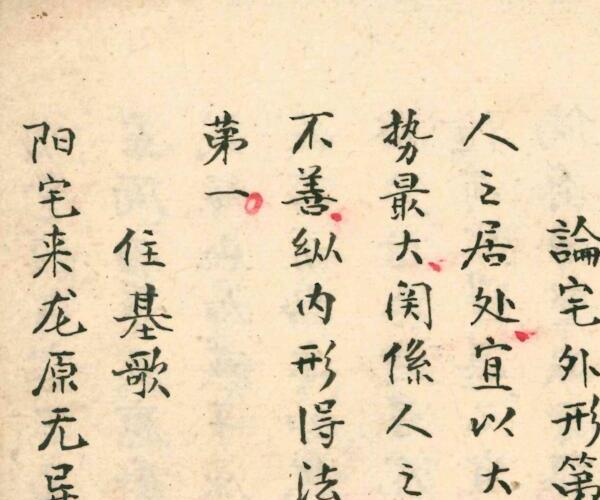 論宅外形第
人之居处宜以大
势最大関係人之
不善纵内形得法
第一
住基歌
阳宅来龙原无异